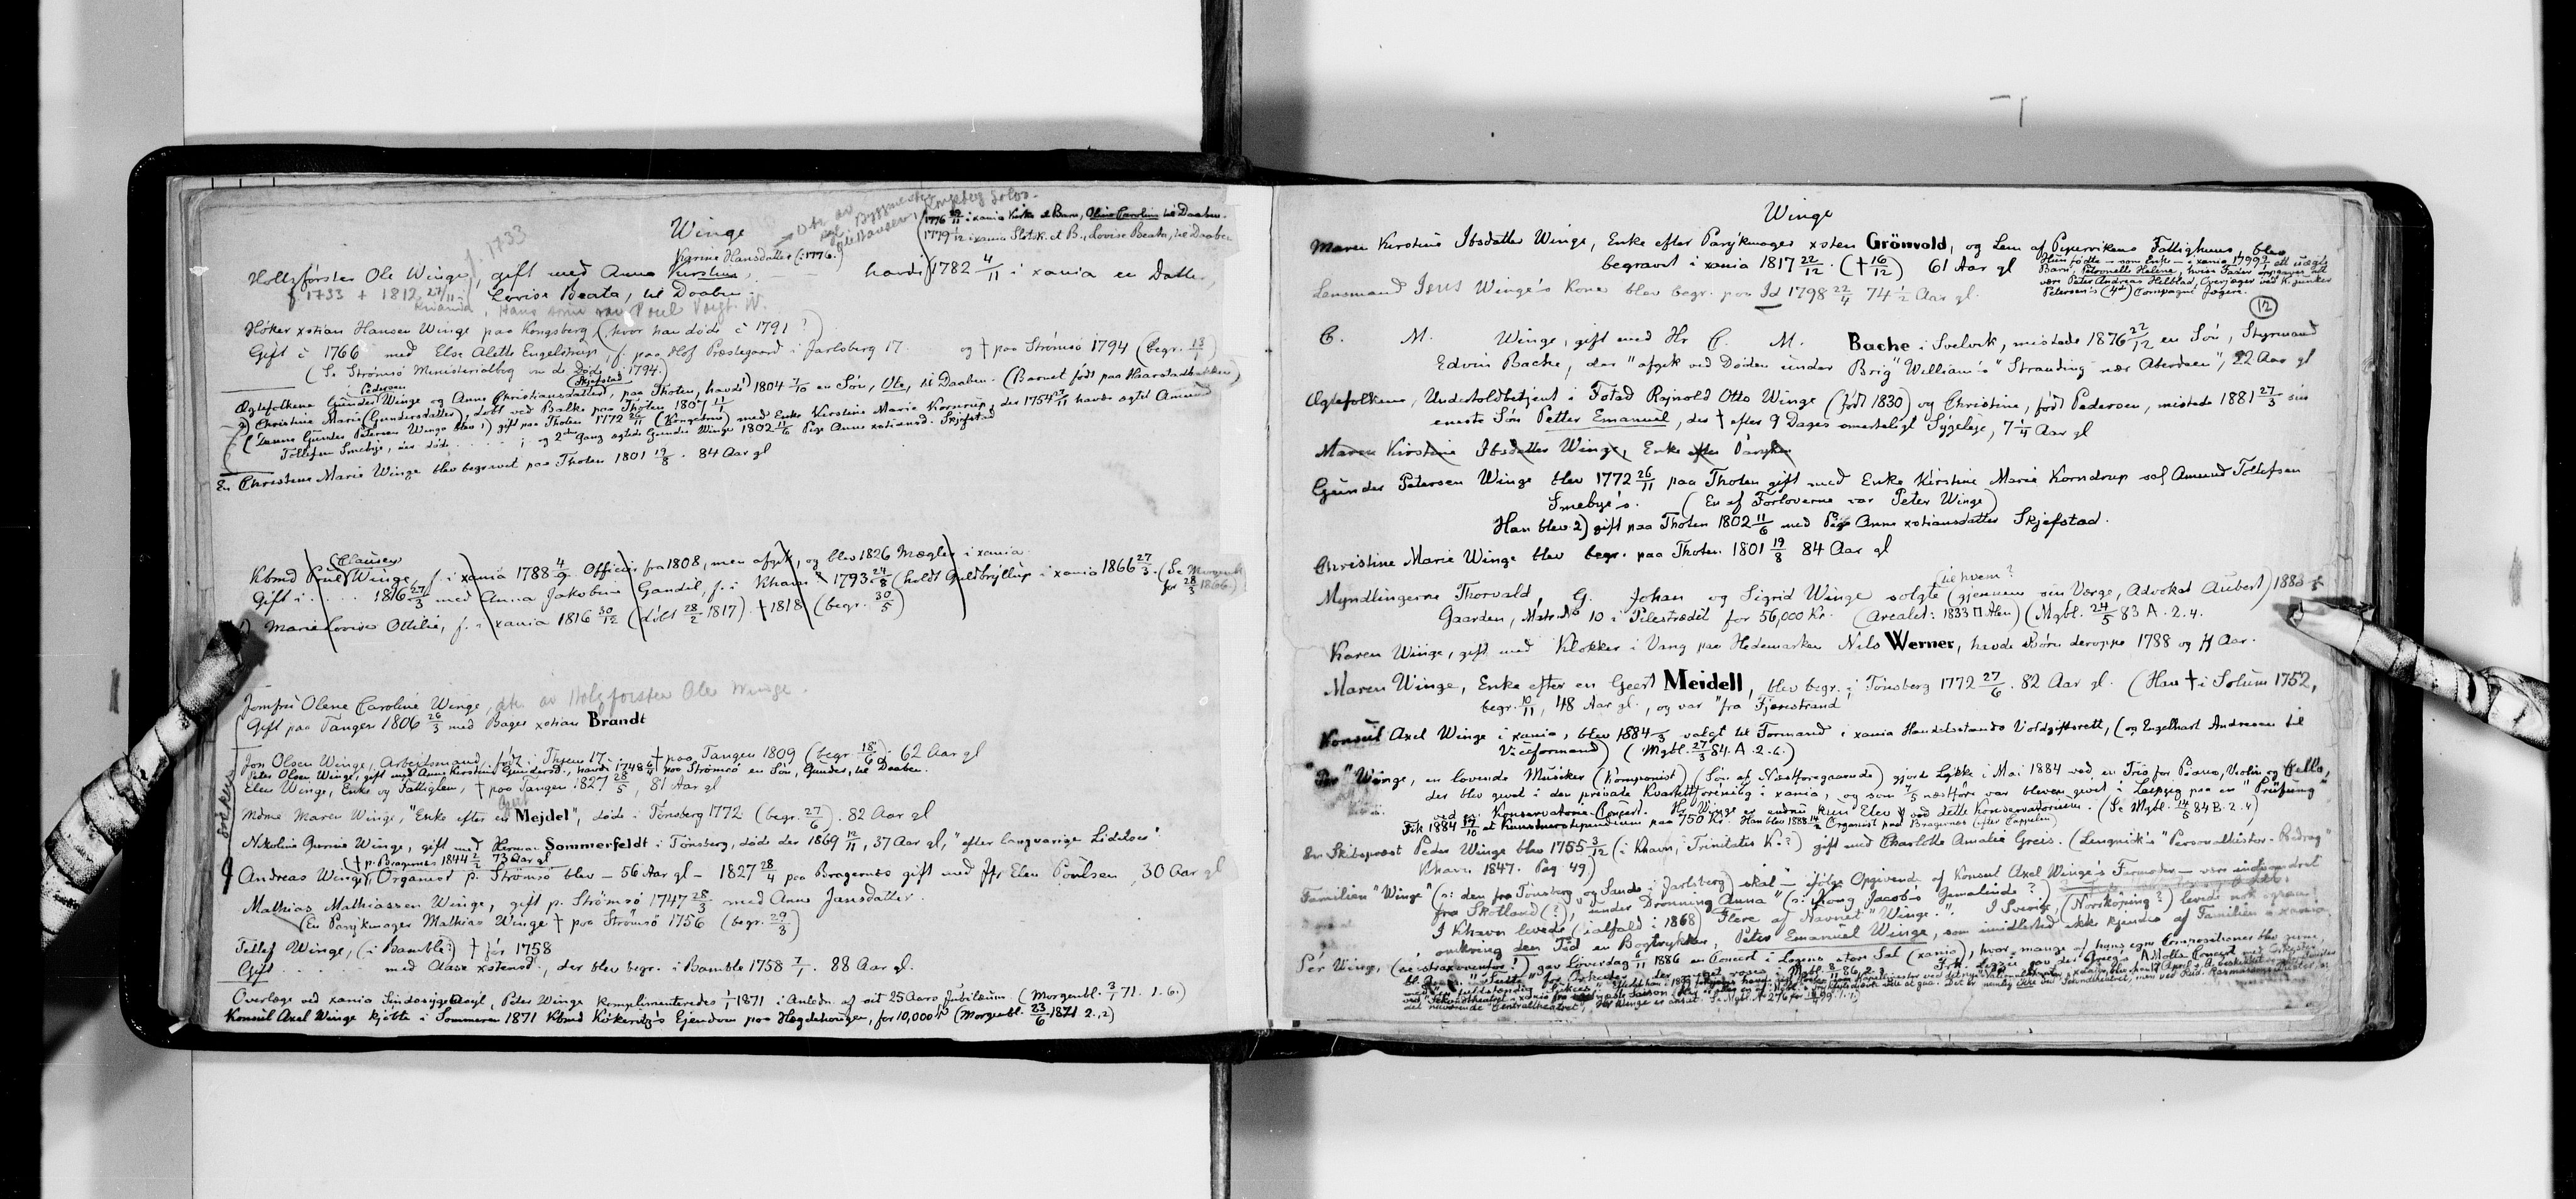 Winge
1733
Dtr. av Byggmester Ole Hansen, Kongsberg Sølvv.
Karine Hansdatter (: 1776.)
1776 i xania Kirke et Barn, Oline Caroline til Daaben.
1779 1/12 i xania Slotsk. et B., Lovise Beata, til Daaben
Holtzförster Ole Winge, gift med Anna Kirstine, havde 1782 4/11 i xania en Datter,
f. 1733 + 1812 27/11 i Kristiania, Lovise Beata, til Daaben.
Hans sønn var Poul Voigt W.
Höker xstian Hansen Winge paa Kongsberg (hvor han döde c 1791?)
Gift c 1766 med Else Alette Engelstrup, f. paa Hof Præstegaard i Jarlsberg 17. og † paa Strömsö 1794 (begr. 18/1)
(Se Strömsö Ministerialbog om de Döde i 1794.)
Ægtefolkene Gunder Pedersen Winge og Anne Christiansdatter (Skjefstad), paa Thoten, havde 1) 1804 7/10 en Sön, Ole, til Daaben. (Barnet födt paa Haarstadbakken)
2) Christine Marie (Gundersdatter), döbt ved Balke paa Thoten 1807 11/1
(Denne Gunder Petersen Winge blev 1) gift paa Thoten 1772 26/11 (Kongsbro) med Enke Kirstine Marie Kornrup, der 1754 13/11 havde ægtet Amund
Tollefsen Smebye, der döde ; og 2den Gang ægtede Gunder Winge 1802 11/6 Pige Anne xstiansd. Skjefstad
En Christine Marie Winge blev begravet paa Thoten 1801 19/8. 84 Aar gl
Kbmd Poul Clausen Winge, f. i xania 1788 4/9. Officer fra 1808, men afgik, og blev 1826 Mægler i xania
Gift i . . . . 1816 27/3 med Anna Jakobine Gandil, f. i Khavn? 1793 24/8 (holdt Guldbryllup i xania 1866 27/3. (Se Morgenbl. for 28/3 1866)
1) Marie Lovise Ottilie, f. i xania 1816 30/12 (döbt 28/2 1817). † 1818 (begr. 30/5)
Jomfru Olene Caroline Winge, dtr. av Holzforsten Ole Winge.
Gift paa Tangen 1806 26/3 med Bager xstian Brandt
Jon Olsen Winge, Arbeidsmand, födt i Thjem 17. † paa Tangen 1809 (begr. 18/6). 62 Aar gl
Peter Olsen Winge, gift med Anne Kirstine Gundersd., havde 1748 6/4 paa Strömsö en Sön, Gunder, til Daaben.
Elen Winge, Enke og Fattiglem, † paa Tangen 1827 28/5, 81 Aar gl
Mdme Maren Winge, "Enke efter en Geert Mejdel", döde i Tönsberg 1772 (begr. 27/6). 82 Aar gl
Nikoline Gurine Winge, gift med Herman Sommerfeldt i Tönsberg, döde der 1869 12/11, 37 Aar gl, "efter langvarige Lidelser"
(† p. Bragernes 1844 2/2 73 Aar gl
Andreas Winge, Organist p. Strömsö blev – 56 Aar gl – 1827 28/4 paa Bragernes gift med Jfr Elen Poulsen, 30 Aar gl
Mathias Mathiassen Winge, gift p. Strömsö 1747 28/3 med Anne Jansdatter.
(En Parÿkmager Mathias Winge † paa Strömsö 1756 (begr. 29/3)
Tellef Winge, (i Bamble?) † för 1758
Gift . . . . . med Aase xstensd., der blev begr. i Bamble 1758 7/1. 88 Aar gl.
Overlæge ved xania Sindssygeasyl, Peter Winge komplimenteredes 1/1 1871 i Anledn. af sit 25 Aars Jubilæum. (Morgenbl. 3/1 71. 1. 6.)
Konsul Axel Winge kjöbte i Sommeren 1871 Kbmd Kökeritz's Ejendom paa Hægdehougen, for 10,000 (Morgenbl. 23/6 1871 2., 2)
Winge
Maren Kirstine Ibsdatter Winge, Enke efter Parÿkmager xsten Grönvold, og Lem af Pipervikens Fattighuus, blev
begravet i xania 1817 22/12. († 16/12) 61 Aar gl
Hun födte – som Enke – i xania 1799 et uægte
Barn, Petronelle Helene, hvis Fader opgaves at
være Peter Andreas Helblad, Overjæger ved K.junker
Petersen's (4de) Compagni Jægere.
Lensmand Jens Winge's Kone blev begr. paa Id 1798 22/4 74 1/2 Aar gl.
(12)
C. M. Winge, gift med Hr C. M. Bache i Svelvik, mistede 1876 22/12 en Sön, Styrmand
Edvin Bache, der "afgik ved Döden under Brig "William's" Stranding nær Aberdeen", 22 Aar gl
Ægtefolkene, Underfoldbetjent i Fstad Rejnold Otto Winge (födt 1830) og Christine, födt Pedersen, mistede 1881 27/3 sin
eneste Sön Petter Emanuel, der † efter 9 Dages smerteligt Sygeleje, 7 1/4 Aar gl
Maren Kirstine Ibsdatter Winge, Enke efter Paryken
Gunder Petersen Winge blev 1772 26/11 paa Thoten gift med Enke Kirstine Marie Korndrup sal Amund Tollefsen
Smebye's. (En af Forloverne var Peter Winge)
Han blev 2) gift paa Thoten 1802 11/6 med Pige Anne xstiansdatter Skjefstad.
Christine Marie Winge blev begr. paa Thoten 1801 19/8 84 Aar gl
(til hvem?
Myndlingerne Thorvald, G. Johan og Sigrid Winge solgte (gjennem sin Værge, Advokat Aubert) 1883
Gaarden, Matr. No 10 i Pilestrædet for 56,000 Kr. (Arealet: 1833 □ Alen) (Mgbl. 24/5 83 A. 2. 4.
Karen Winge, gift med Klokker i Vang paa Hedemarken Nils Werner, havde Börn deroppe 1788 og ff Aar.
Maren Winge, Enke efter en Geert Meidell, blev begr. i Tönsberg 1772 27/6. 82 Aar gl. (Han † i Solum 1752,
begr. 10/11, 48 Aar gl., og var "fra Fjærestrand"
Konsul Axel Winge i xania, blev 1884 /3 valgt til Formand i xania Handelsstands Voldgiftsrett, (og Engelhart Andresen til
Viceformand) (Mgbl. 27/3 84. A. 2. 6.)
"Per" Winge, en lovende Musiker (Komponist) (Sön af Næstforegaaende) gjorde Lykke i Mai 1884 ved en Trio for Piano, Violin og Cello,
der blev givet i den private Kvartettforening i xania, og som 7/5 næstför var bleven givet i Leipzig paa en "Prüfung"
ved et Konservatorie-Concert. Hr Winge er endnu kun Elev ved dette Konservatorium. (Se Mgbl. 14/5 84 B. 2. 4)
Fik 1884 17/10 et Kunstnerstipendium paa 750 Kr. Han blev 1888 14/2 Organist paa Bragernes (efter Cappelen)
En Skibspræst Peder Winge blev 1755 3/12 (i Khavn, Trinitatis K.?) gift med Charlotte Amalie Greis. (Lengnick's "Personalhistor. Bidrag"
Khavn 1847. Pag 49)
Familien "Winge" (o: den fra Tönsberg og Sande i Jarlsberg) skal – ifölge Opgivende af Konsul Axel Winge's Farmoder – være indvandret
fra Skotland (?), under "Dronning Anna" (o: Kong Jacob's Gemalinde?) I Sverige (Norrköping?) levede nok ogsaa
I Khavn levede (ialfald i 1868) Flere af Navnet "Winge".
omkring den Tid en Bogtrykker, Peter Emanuel Winge, som imidlertid ikke kjendes af Familien i xania.
Per Winge, (se straxovenfor!) gav Löverdag 6/11 1886 en Concert i Logens store Sal (xania), hvor mange af hans egne Compositioner blev